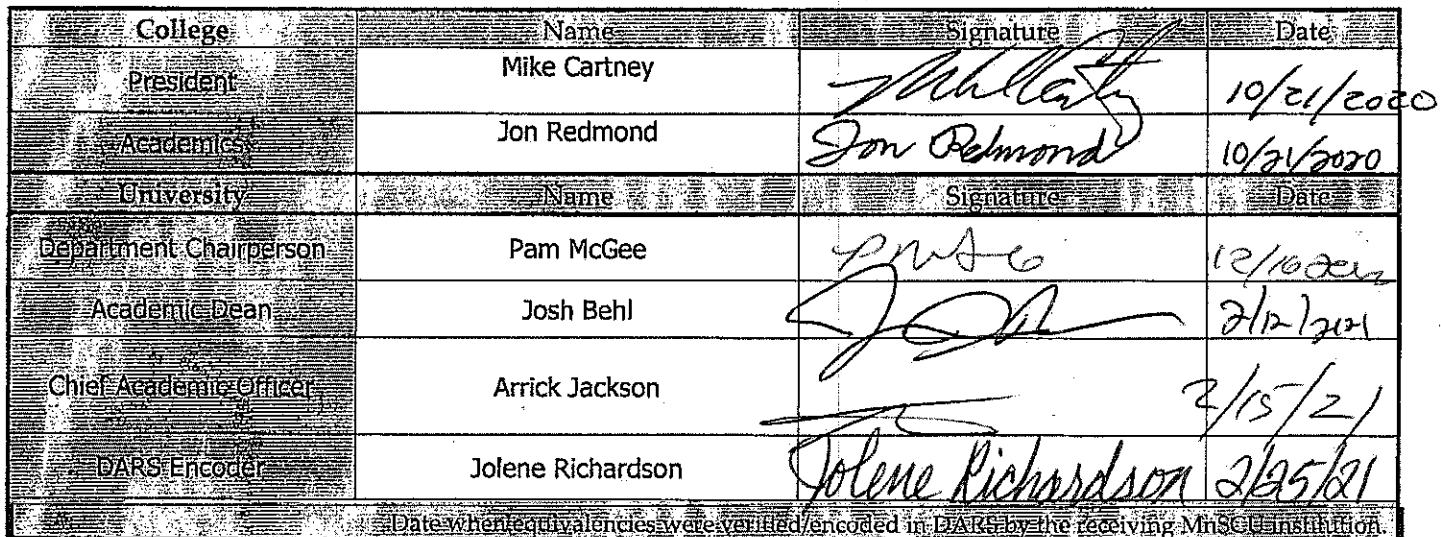 College Name Signature Date
President Mike Cartney 10/21/2020
Academics Jon Redmond Jon Redmond 10/21/2020
University Name Signature Date
Department Chairperson Pam McGee
Academic Dean Josh Behl 2/12/2021
Chief Academic Officer Arrick Jackson 2/15/21
DARS Encoder Jolene Richardson Jolene Richardson 2/25/21
Date when equivalencies were verified/encoded in DARS by the receiving MnSCU institution.